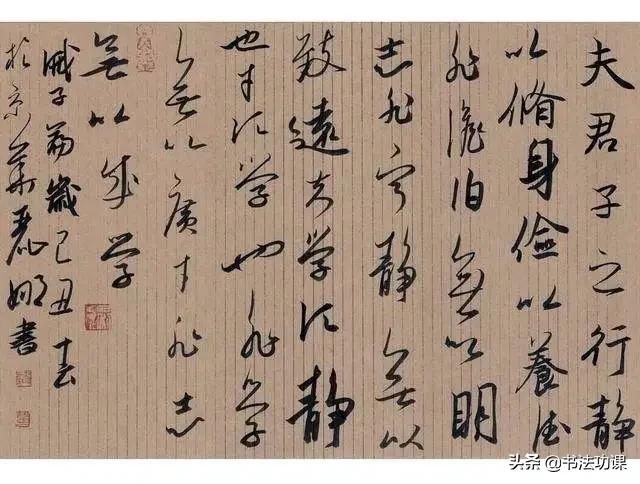 夫君子之行静
以脩身儉以養德
非澹泊無以明
志非宁静無以
致遠夫学須静
也才須学也非学
無以廣才非志
無以成学
誡子篇歲己丑
於京華書
头条 @书法功课